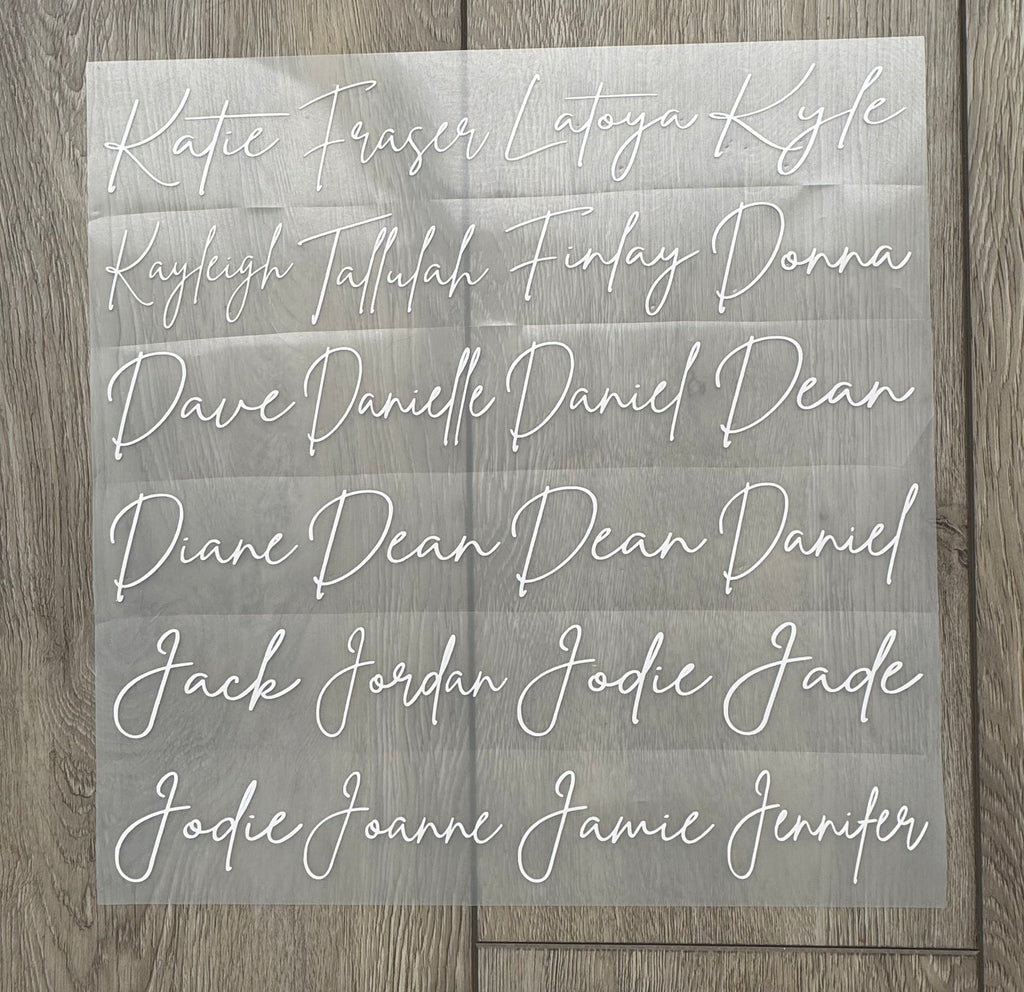 Katie Fraser Latoya Kyle
Kayleigh Tallulah Finlay Donna
Dave Danielle Daniel Dean
Diane Dean Dean Daniel
Jack Jordan Jodie Jade
Jodie Joanne Jamie Jennifer